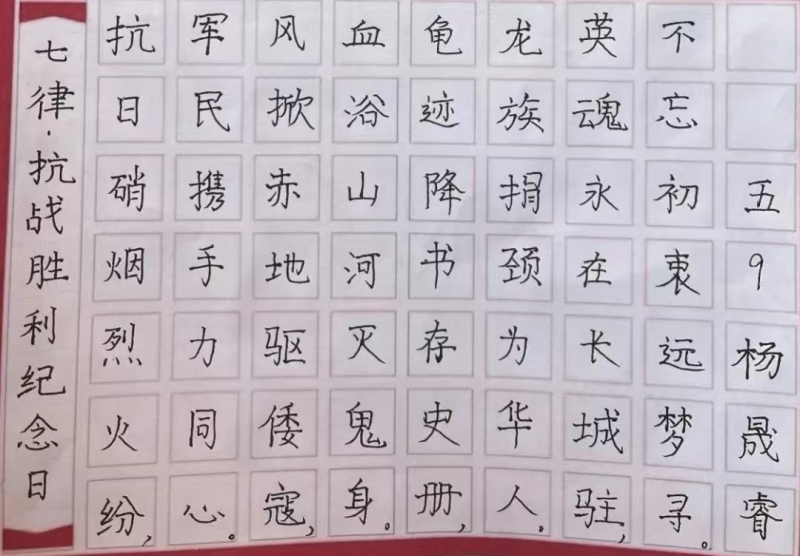 七律·抗战胜利纪念日
抗日硝烟烈火纷,
军民携手力同心。
风掀赤地驱倭寇,
血浴山河灭鬼身。
龟迹降书存史册,
龙族捐颈为华人。
英魂永在长城驻,
不忘初衷远梦寻。
五9杨晟睿